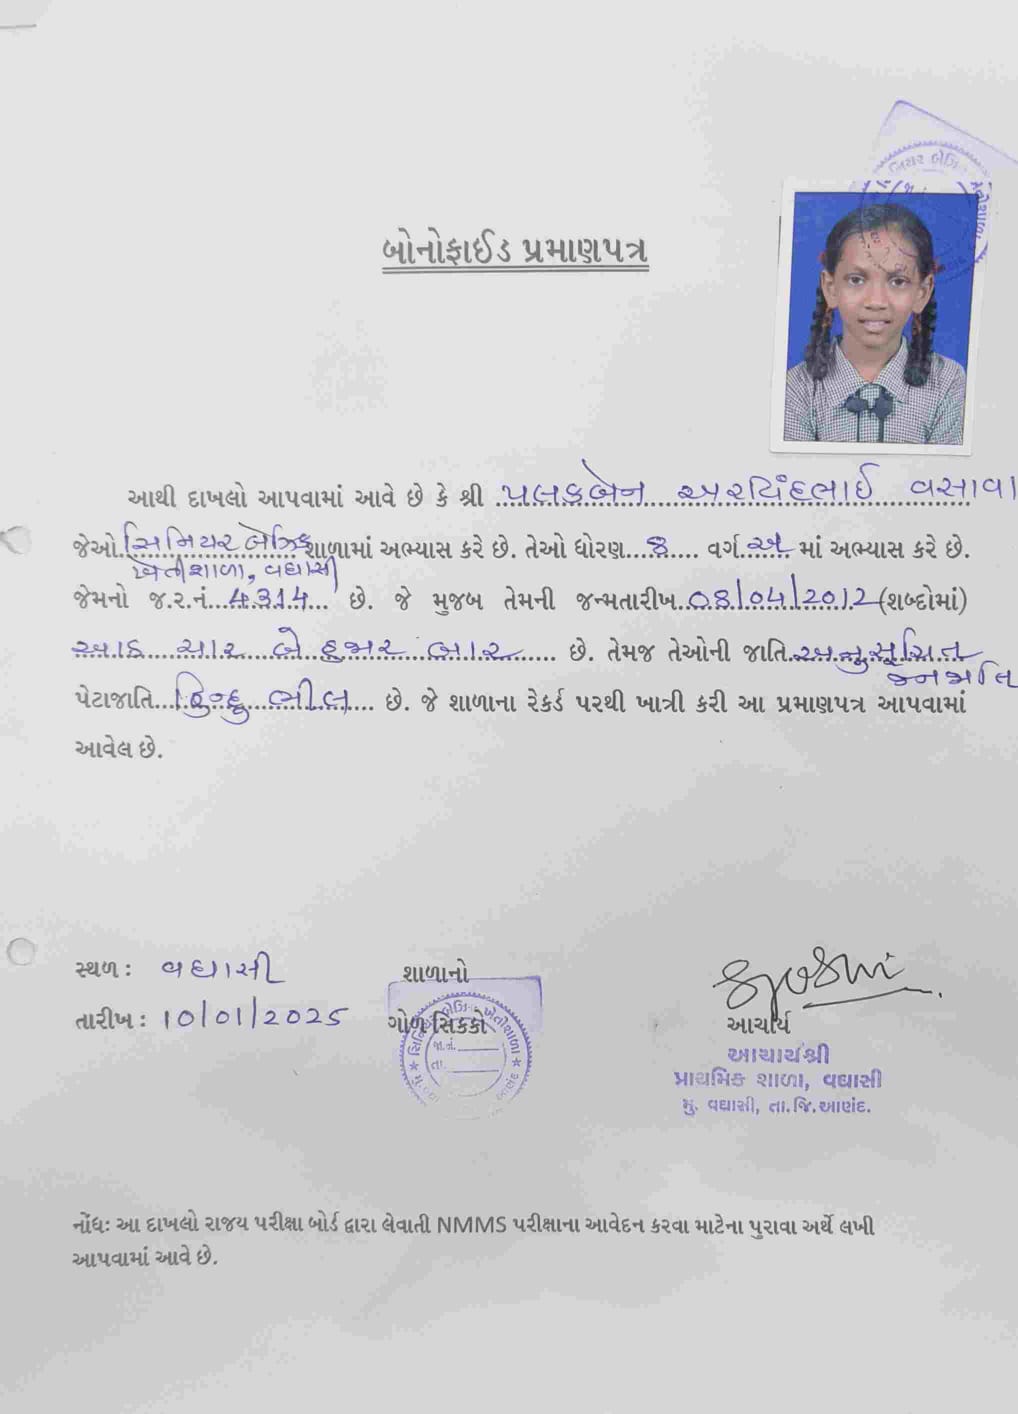 બોનોફાઈડ પ્રમાણપત્ર
આથી દાખલો આપવામાં આવે છે કે શ્રી પલકબેન અરવિંદભાઈ વસાવા
જેઓ સિનિયર બેઝિક શાળામાં અભ્યાસ કરે છે. તેઓ ધોરણ 8 વર્ગ અ માં અભ્યાસ કરે છે.
ખેતીશાળા, વઘાસી
જેમનો જ.ર.નં. 4314 છે. જે મુજબ તેમની જન્મતારીખ 08/04/2012 (શબ્દોમાં)
આઠ ચાર બે હજાર બાર છે. તેમજ તેઓની જાતિ અનુસૂચિત
જનજાતિ
પેટાજાતિ હિન્દુ ભીલ છે. જે શાળાના રેકર્ડ પરથી ખાત્રી કરી આ પ્રમાણપત્ર આપવામાં
આવેલ છે.
સ્થળ : વઘાસી
શાળાનો
તારીખ : 10/01/2025
ગોળ સિક્કો
સિનિયર બેઝિક ખેતીશાળા
જા.નં.
તા.
આણંદ
આચાર્ય
આચાર્યશ્રી
પ્રાથમિક શાળા, વઘાસી
મુ. વઘાસી, તા.જિ.આણંદ.
નોંધ: આ દાખલો રાજય પરીક્ષા બોર્ડ દ્વારા લેવાતી NMMS પરીક્ષાના આવેદન કરવા માટેના પુરાવા અર્થે લખી
આપવામાં આવે છે.